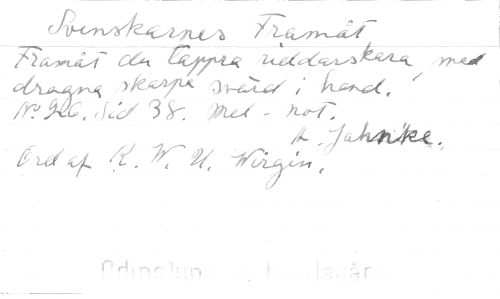 Svenskarnes Framåt
Framåt du tappra riddarskara, med
dragna skarpa svärd i hand.
No 926. Sid 38. Mel - not.
A. Jahnke.
Ord af K. W. U. Wirgin.